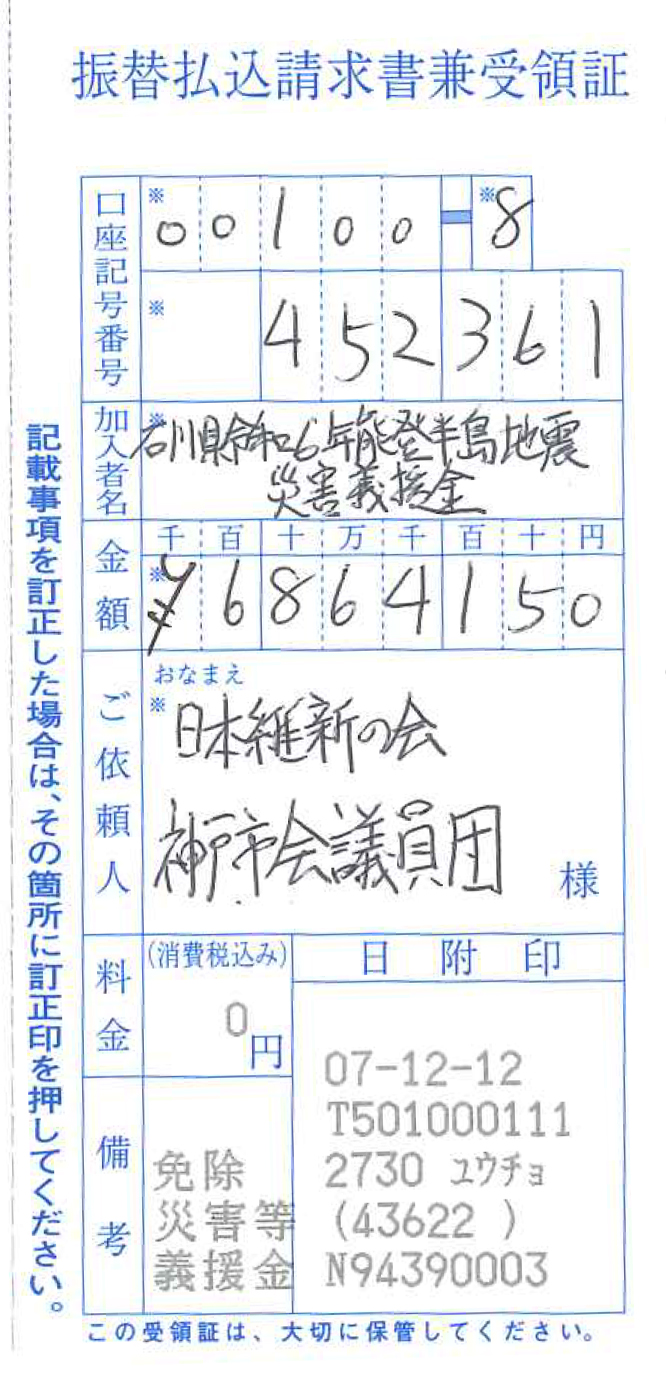 振替払込請求書兼受領証
口座記号番号
※ 00100-8
※ 452361
加入者名
※ 石川県令和6年能登半島地震
災害義援金
金額
千 百 十 万 千 百 十 円
※ ¥6864150
ご依頼人
おなまえ
※ 日本維新の会
神戸市会議員団 様
料金
(消費税込み)
0円
日附印
07-12-12
T501000111
2730 ユウチョ
(43622 )
N94390003
備考
免除
災害等
義援金
記載事項を訂正した場合は、その箇所に訂正印を押してください。
この受領証は、大切に保管してください。